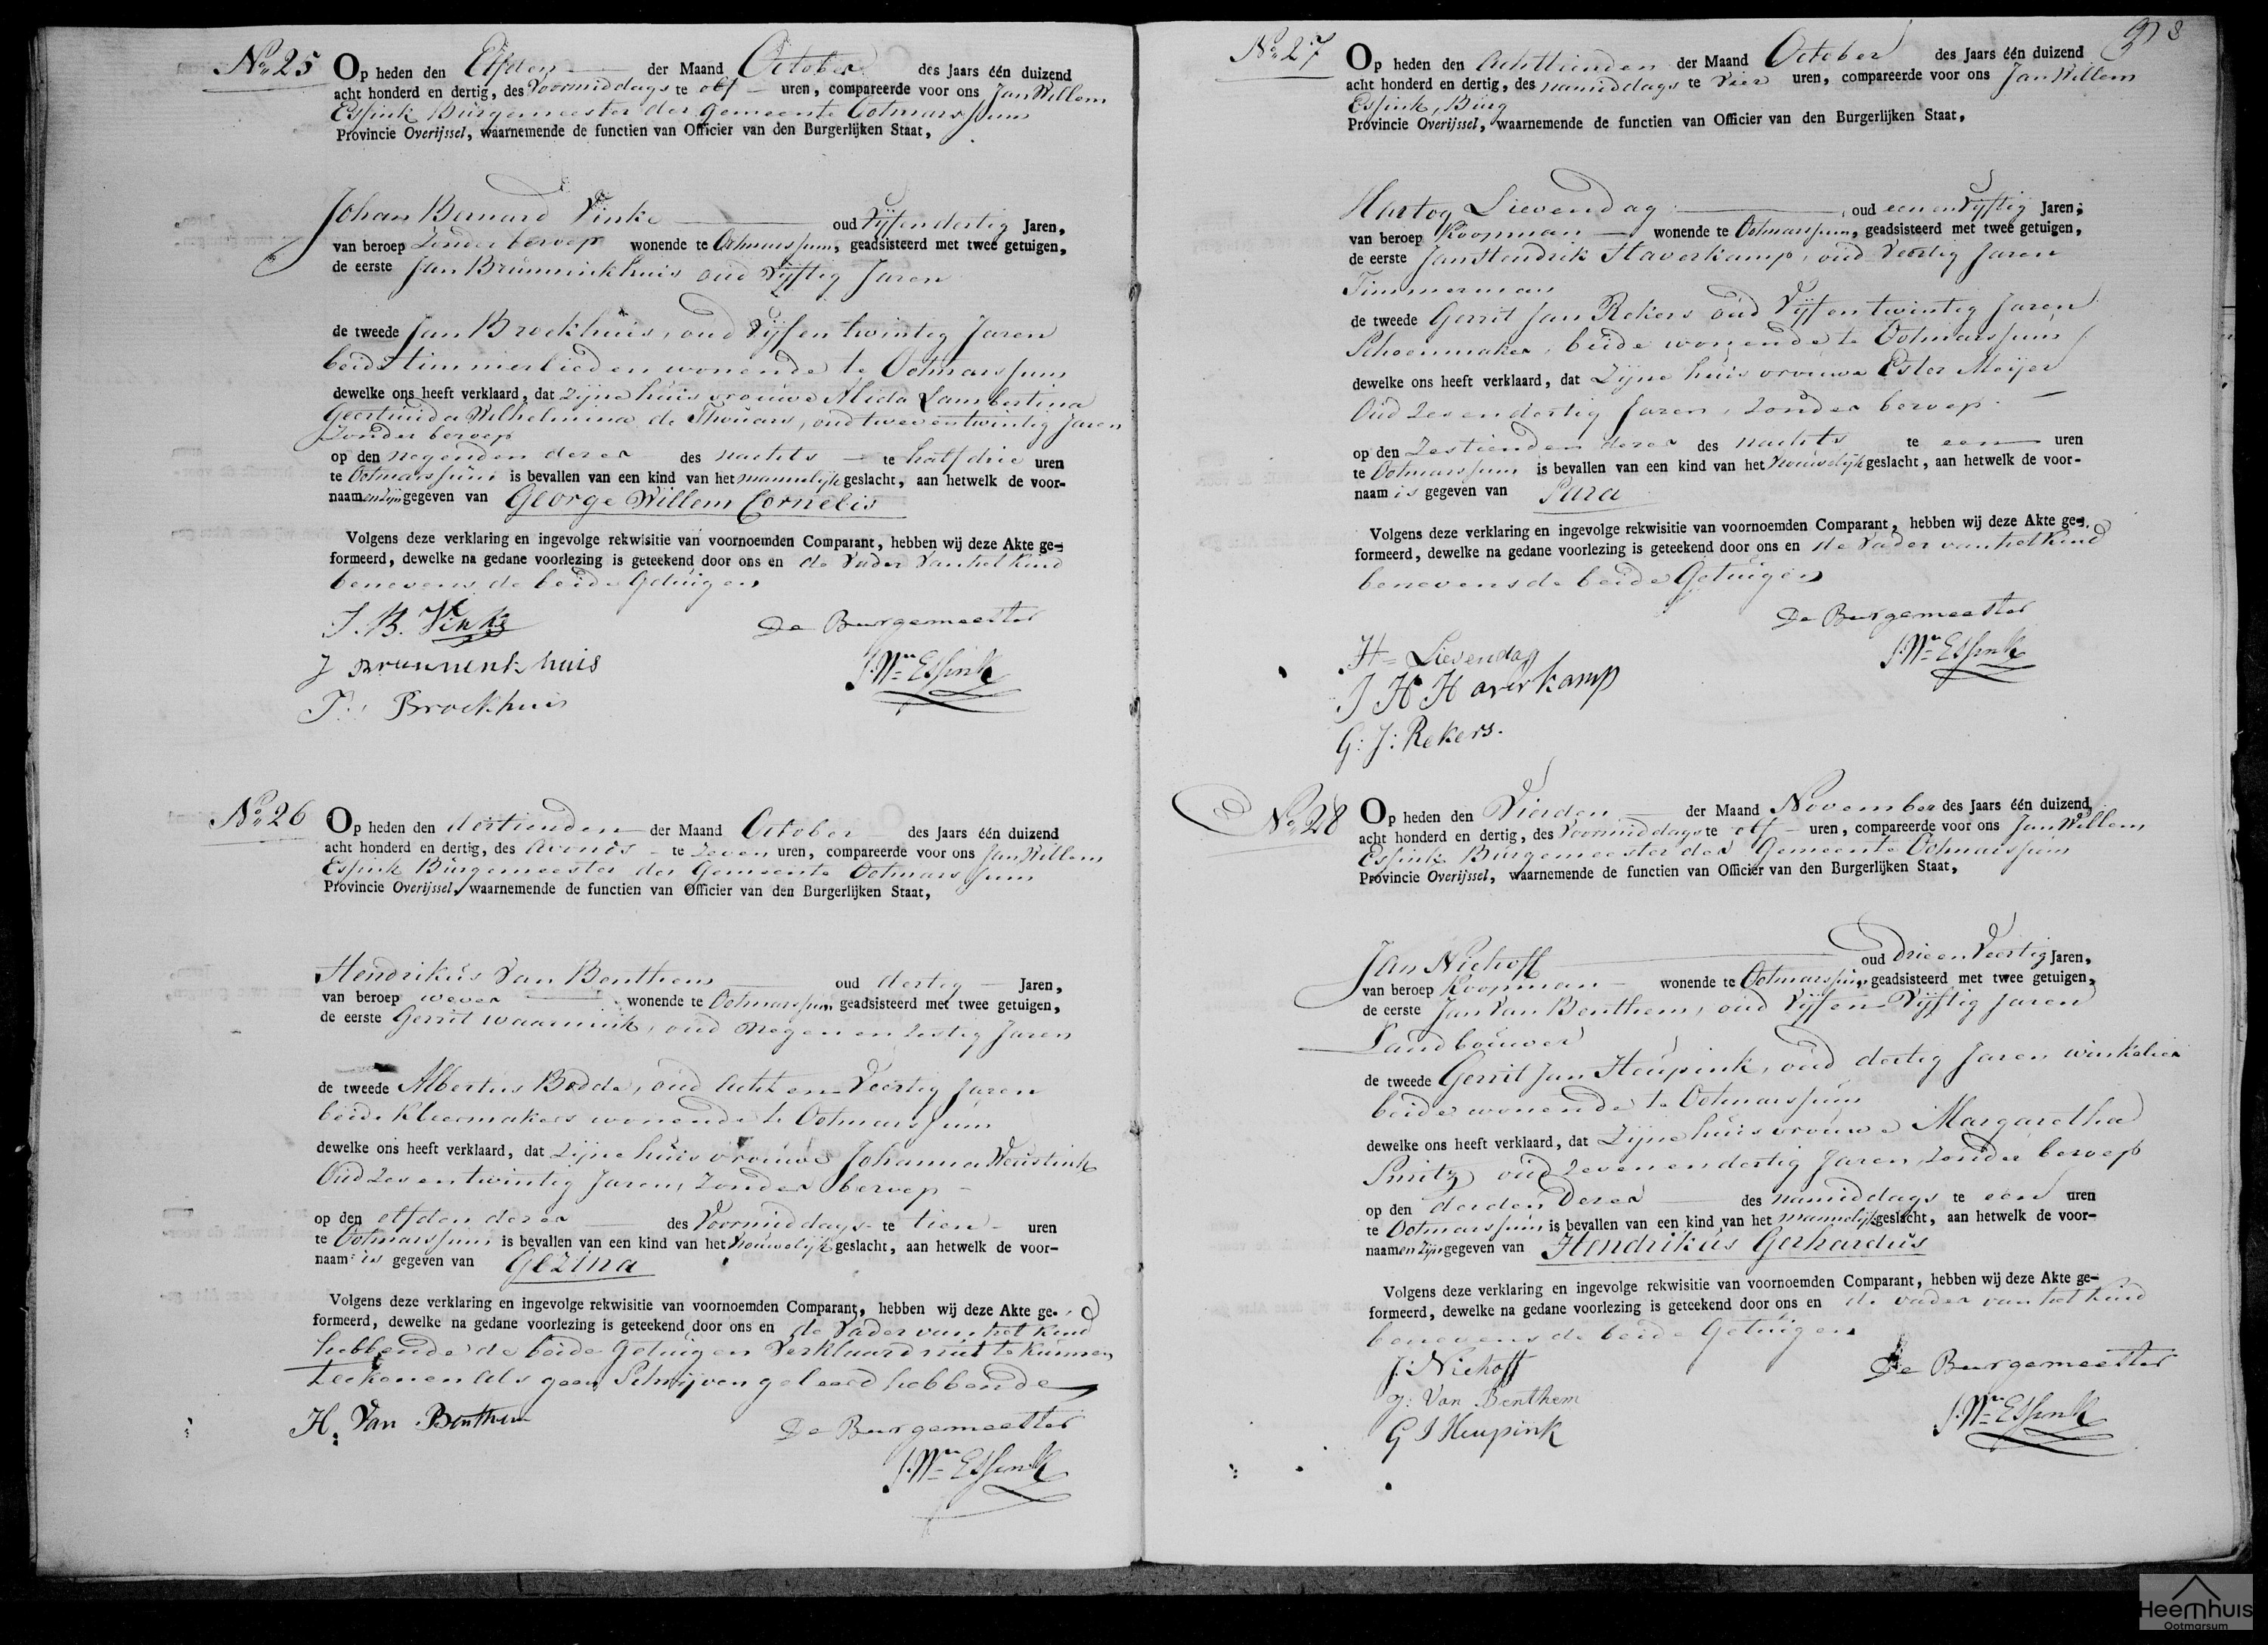 No. 25
Op heden den Elfden der Maand October des Jaars één duizend
acht honderd en dertig, des Voormiddags te elf uren, compareerde voor ons Jan Willem
Essink Burgemeester der Gemeente Ootmarssum
Provincie Overijssel, waarnemende de functien van Officier van den Burgerlijken Staat,
Johan Bernard Vinke oud Vijfendertig Jaren,
van beroep Zonder beroep wonende te Ootmarssum, geadsisteerd met twee getuigen,
de eerste Jan Brunninkhuis oud Vijftig Jaren
de tweede Jan Broekhuis, oud Vijf en twintig Jaren
beide timmerlieden wonende te Ootmarssum
dewelke ons heeft verklaard, dat zijne huisvrouwe Alida Lambertina
Geertruida Wilhelmina de Thouars, oud twee en twintig Jaren
Zonder beroep
op den negenden dezer des nachts te half drie uren
te Ootmarssum is bevallen van een kind van het mannelijk geslacht, aan hetwelk de voor-
naamen zijn gegeven van George Willem Cornelis
Volgens deze verklaring en ingevolge rekwisitie van voornoemden Comparant, hebben wij deze Akte ge-
formeerd, dewelke na gedane voorlezing is geteekend door ons en de Vader van het kind
benevens de beide Getuigen
J. B. Vinke
De Burgemeester
J Brunnenkhuis
J. Wm Essink
J. Broekhuis
No. 26
Op heden den dertienden der Maand October des Jaars één duizend
acht honderd en dertig, des Avonds te Zeven uren, compareerde voor ons Jan Willem
Essink Burgemeester der Gemeente Ootmarssum
Provincie Overijssel, waarnemende de functien van Officier van den Burgerlijken Staat,
Hendrikus Van Benthem oud dertig Jaren,
van beroep wever wonende te Ootmarssum geadsisteerd met twee getuigen,
de eerste Gerrit waarmink, oud negen en zestig Jaren
de tweede Albertus Bodde, oud Acht en Veertig Jaren
beide Kleermakers wonende te Ootmarssum
dewelke ons heeft verklaard, dat zijne huisvrouwe Johanna Weustink
Oud Zes en twintig Jaren, Zonder beroep
op den elfden dezer des Voormiddags te tien uren
te Ootmarssum is bevallen van een kind van het Vrouwelijk geslacht, aan hetwelk de voor-
naam is gegeven van Gezina
Volgens deze verklaring en ingevolge rekwisitie van voornoemden Comparant, hebben wij deze Akte ge-
formeerd, dewelke na gedane voorlezing is geteekend door ons en de Vader van het kind
hebbende de beide Getuigen Verklaard niet te kunnen
teekenen als geen Schrijven geleerd hebbende
H. Van Benthem
De Burgemeester
J. Wm Essink
8
No. 27
Op heden den Achttienden der Maand October des Jaars één duizend
acht honderd en dertig, des namiddags te Vier uren, compareerde voor ons Jan Willem
Essink, Burg
Provincie Overijssel, waarnemende de functien van Officier van den Burgerlijken Staat,
Hartog Lievendag oud een en Vijftig Jaren,
van beroep Koopman wonende te Ootmarssum, geadsisteerd met twee getuigen,
de eerste Jan Hendrik Haverkamp, oud Veertig Jaren
Timmerman
de tweede Gerrit Jan Rekers oud Vijf en twintig Jaren
Schoenmaker, beide wonende te Ootmarssum
dewelke ons heeft verklaard, dat Zijne huisvrouwe Ester Meijer
Oud Zes en dertig Jaren, Zonder beroep
op den Zestienden dezer des nachts te een uren
te Ootmarssum is bevallen van een kind van het Vrouwelijk geslacht, aan hetwelk de voor-
naam is gegeven van Sara
Volgens deze verklaring en ingevolge rekwisitie van voornoemden Comparant, hebben wij deze Akte ge-
formeerd, dewelke na gedane voorlezing is geteekend door ons en de Vader van het kind
benevens de beide Getuigen
De Burgemeester
H= Lievendag
J. Wm Essink
J H Haverkamp
G: J: Rekers.
No. 28
Op heden den Vierden der Maand November des Jaars één duizend
acht honderd en dertig, des Voormiddags te elf uren, compareerde voor ons Jan Willem
Essink Burgemeester der Gemeente Ootmarssum
Provincie Overijssel, waarnemende de functien van Officier van den Burgerlijken Staat,
Jan Niehoff oud Drie en Veertig Jaren,
van beroep Koopman wonende te Ootmarssum, geadsisteerd met twee getuigen,
de eerste Jan Van Benthem, oud Vijf en Vijftig Jaren
Landbouwer
de tweede Gerrit Jan Heupink, oud dertig Jaren winkelier
beide wonende te Ootmarssum
dewelke ons heeft verklaard, dat Zijne huisvrouwe Margaretha
Smitz, oud Zeven en dertig Jaren, Zonder beroep
op den derden Dezer des namiddags te een uren
te Ootmarssum is bevallen van een kind van het mannelijk geslacht, aan hetwelk de voor-
naamen zijn gegeven van Hendrikus Gerhardus
Volgens deze verklaring en ingevolge rekwisitie van voornoemden Comparant, hebben wij deze Akte ge-
formeerd, dewelke na gedane voorlezing is geteekend door ons en de vader van het kind
benevens de beide Getuigen
J: Niehoff
De Burgemeester
J: Van Benthem
J. Wm Essink
G J Heupink
Heemhuis
Ootmarsum